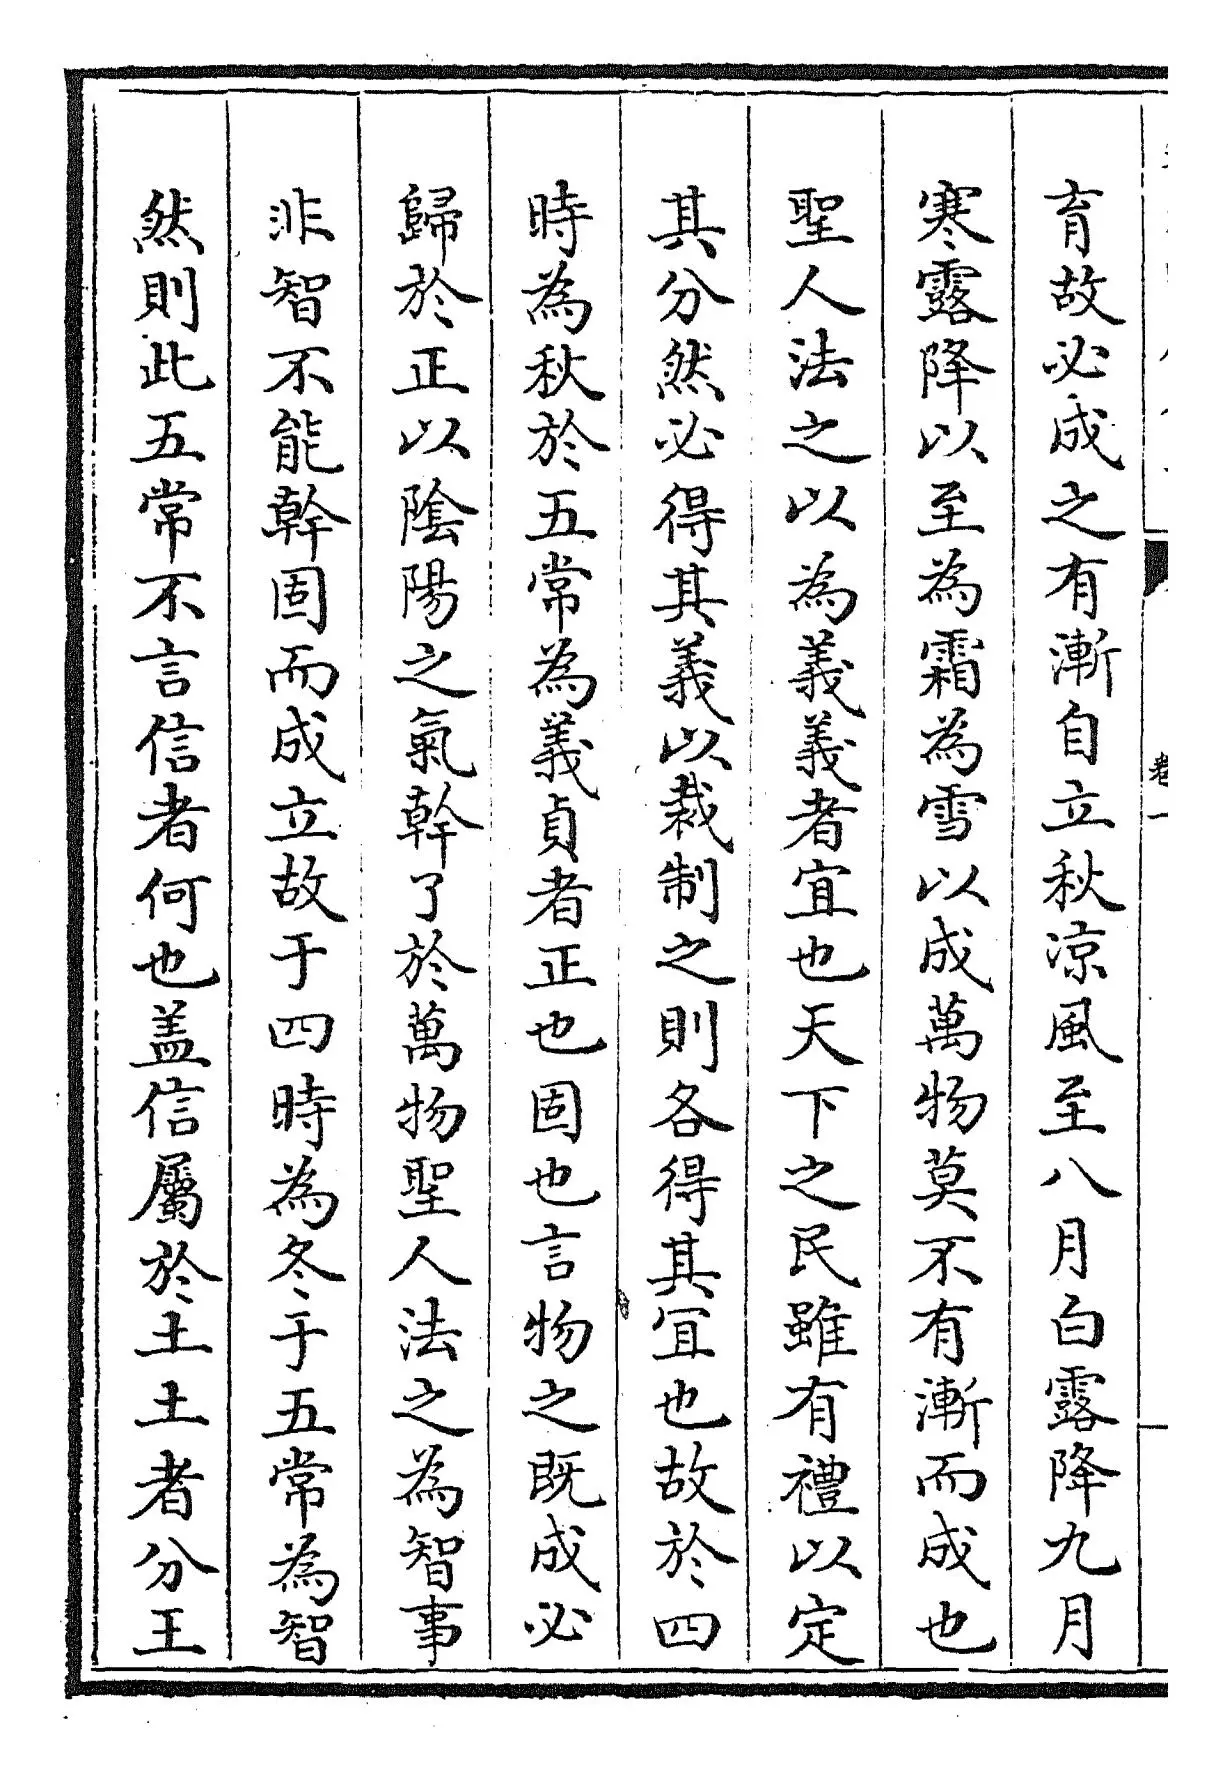 卷一
育故必成之有漸自立秋凉風至八月白露降九月
寒露降以至為霜為雪以成萬物莫不有漸而成也
聖人法之以為義義者宜也天下之民雖有禮以定
其分然必得其義以裁制之則各得其宜也故於四
時為秋於五常為義貞者正也固也言物之既成必
歸於正以隂陽之氣幹了於萬物聖人法之為智事
非智不能幹固而成立故于四時為冬于五常為智
然則此五常不言信者何也盖信屬於土土者分王